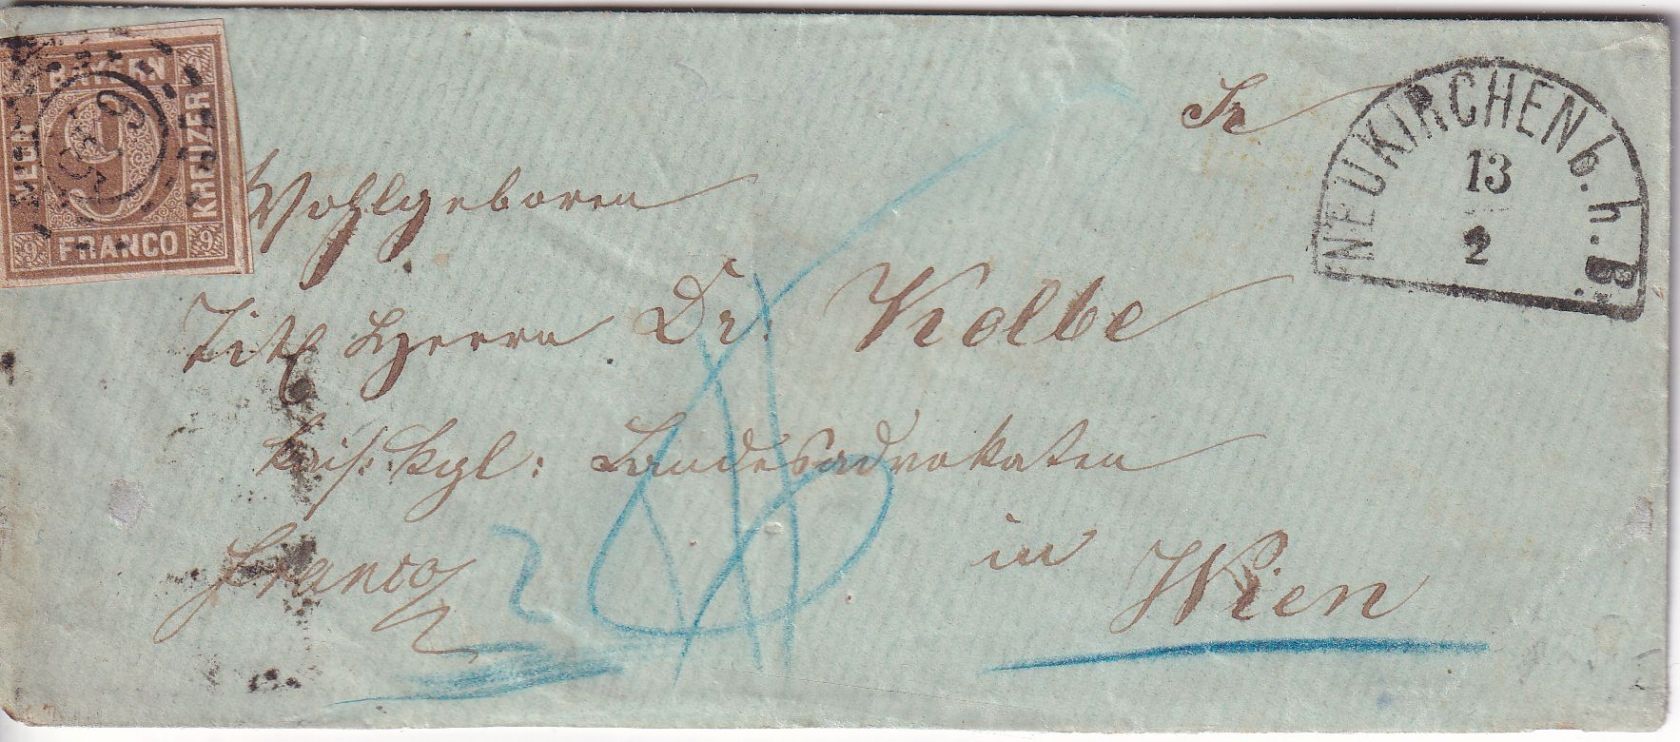 BAYERN
NEUN
KREUZER
FRANCO
9 9
NEUKIRCHEN b. h. B.
13
2
Sr
Wohlgeboren
Titl Herrn Dr. Kolbe
Kais: Kgl: Landesadvokaten
Franco
in
Wien